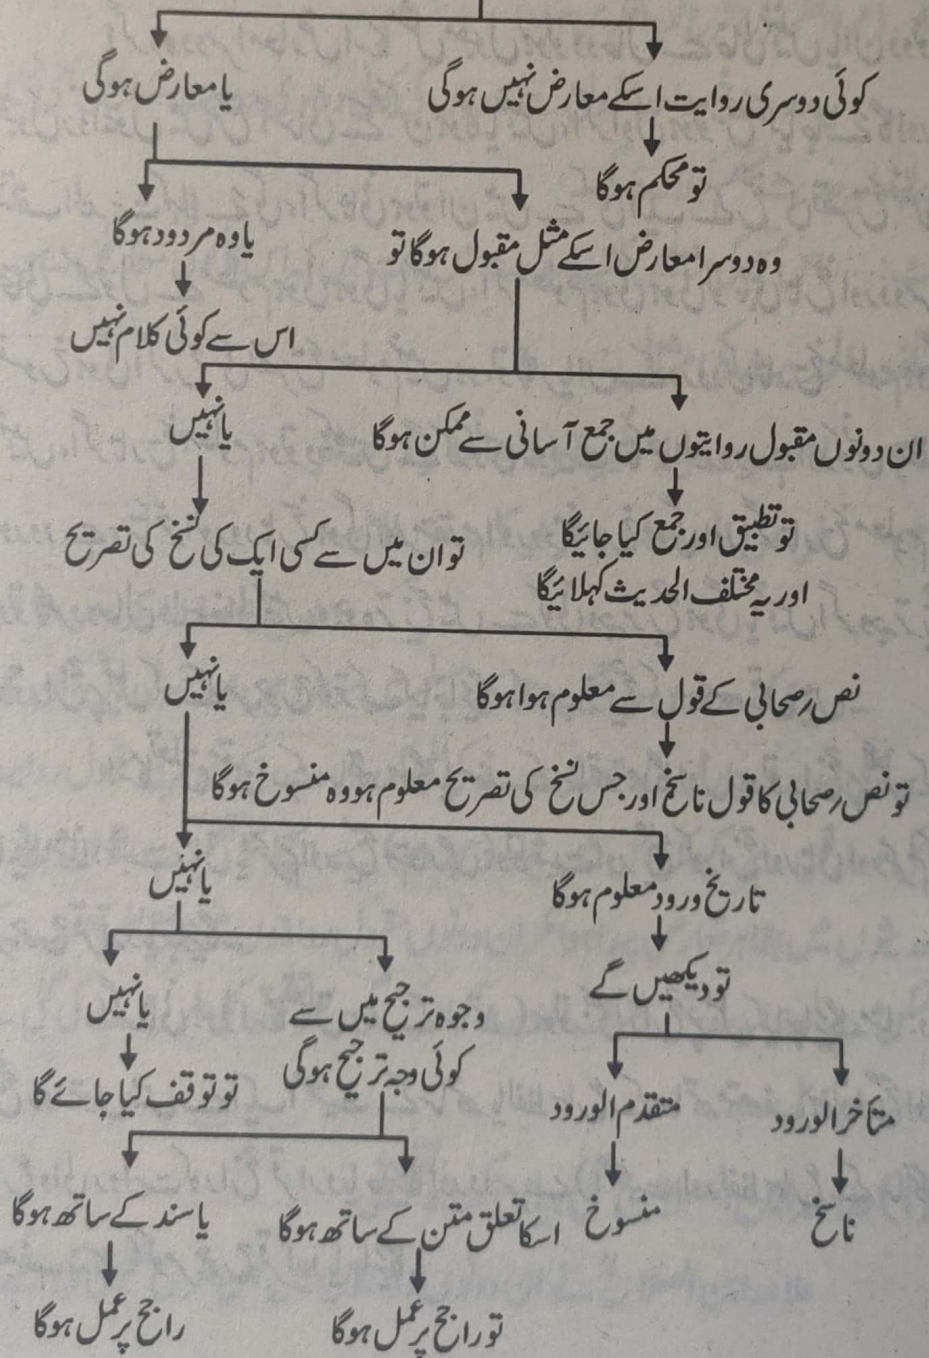 کوئی دوسری روایت اسکے معارض نہیں ہوگی
یا معارض ہوگی
تو محکم ہوگا
وہ دوسرا معارض اسکے مثل مقبول ہوگا تو
یا وہ مردود ہوگا
اس سے کوئی کلام نہیں
ان دونوں مقبول روایتوں میں جمع آسانی سے ممکن ہوگا
یا نہیں
تو تطبیق اور جمع کیا جائیگا
اور یہ مختلف الحدیث کہلائیگا
تو ان میں سے کسی ایک کی نسخ کی تصریح
نص رصحابی کے قول سے معلوم ہوا ہوگا
یا نہیں
تو نص رصحابی کا قول ناسخ اور جس نسخ کی تصریح معلوم ہو وہ منسوخ ہوگا
تاریخ ورود معلوم ہوگا
یا نہیں
تو دیکھیں گے
وجوہ ترجیح میں سے
کوئی وجہ ترجیح ہوگی
یا نہیں
تو توقف کیا جائے گا
متأخر الورود
متقدم الورود
ناسخ
منسوخ
اسکا تعلق متن کے ساتھ ہوگا
یا سند کے ساتھ ہوگا
تو راجح پر عمل ہوگا
راجح پر عمل ہوگا